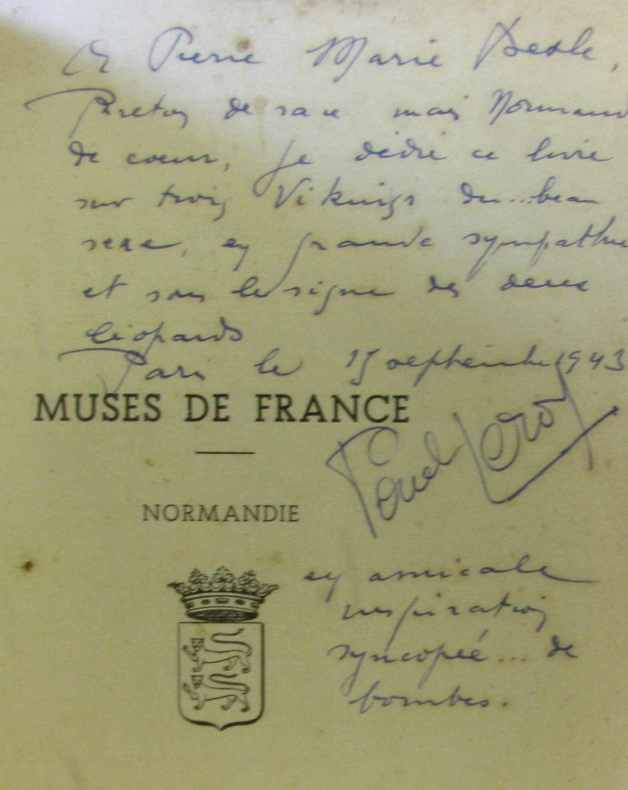 A Pierre Marie
Breton de race mais Normand
de coeur, je dédie ce livre
sur trois Vikings du...beau
sexe, en grande sympathie
et sous le signe des deux
léopards
Paris le 15 septembre 1943
MUSES DE FRANCE
Paul Leroy
NORMANDIE
en amicale
inspiration
syncopée... de
bombes.